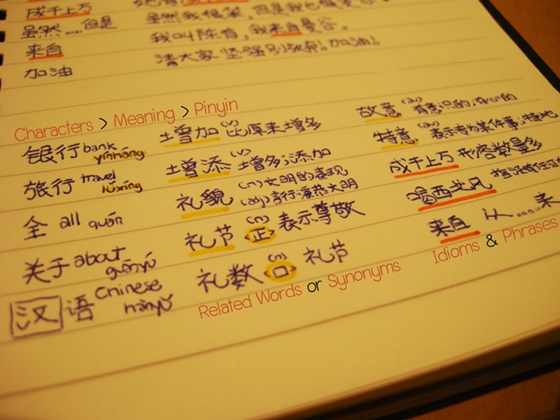 成千上万
虽然....但是 虽然我很笨，但是我也很
来自 我叫陈育，我来自曼谷。
加油 清大家坚强别放弃！加油！
Characters > Meaning > Pinyin
银行 bank yínháng
旅行 travel lǚxíng
全 all quán
关于 about guānyú
汉语 Chinese hànyǔ
增加 (v) 比原来增多
增添 (v) 增多;添加
礼貌 (n) 文明的表现
(adj) 言行谦恭文明
礼节 (n) 正 表示尊敬
礼数 (n) 口 礼节
Related Words or Synonyms
故意 有意识的,存心的
特意 表示专为某件事,特地
成千上万 形容数量多
喝西北风
来自 从....来
Idioms & Phrases